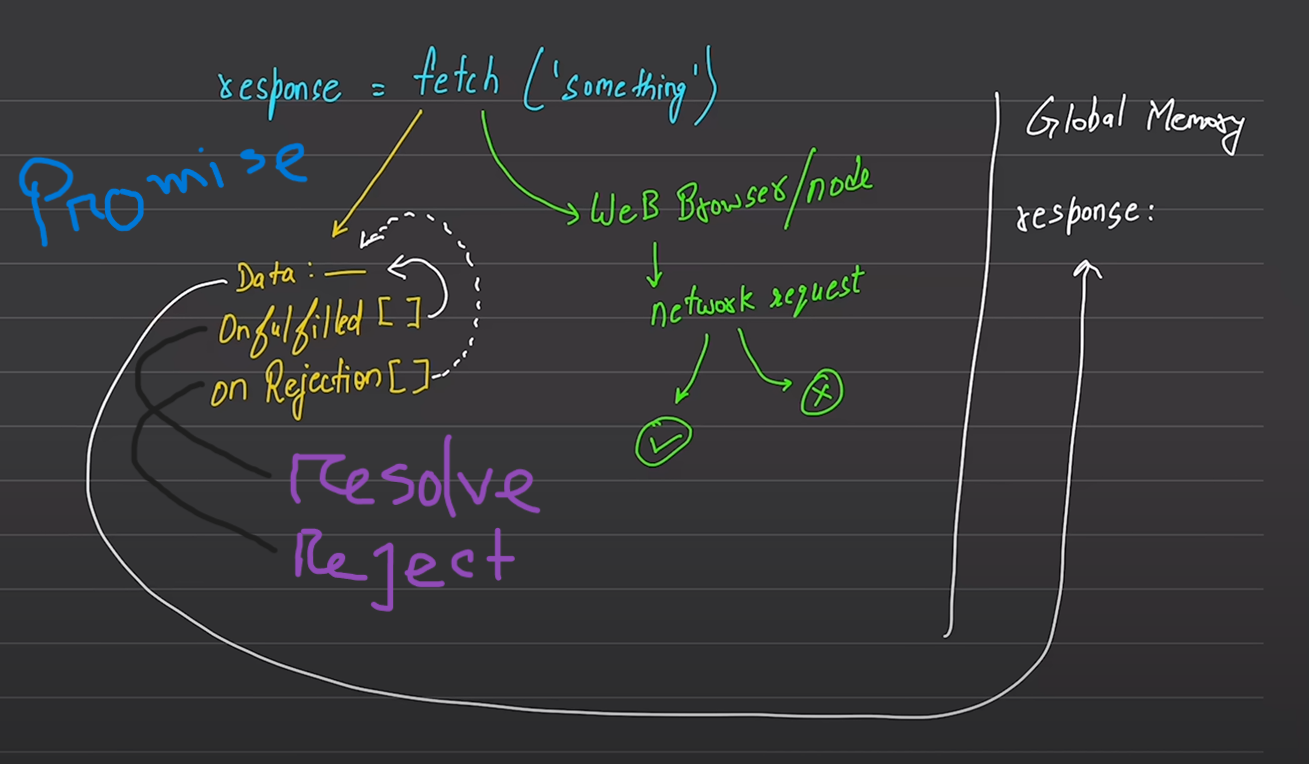 response = fetch ('something')
Promise
Data : —
Onfulfilled [ ]
on Rejection [ ]
Resolve
Reject
WeB Browser/node
network request
Global Memory
response: